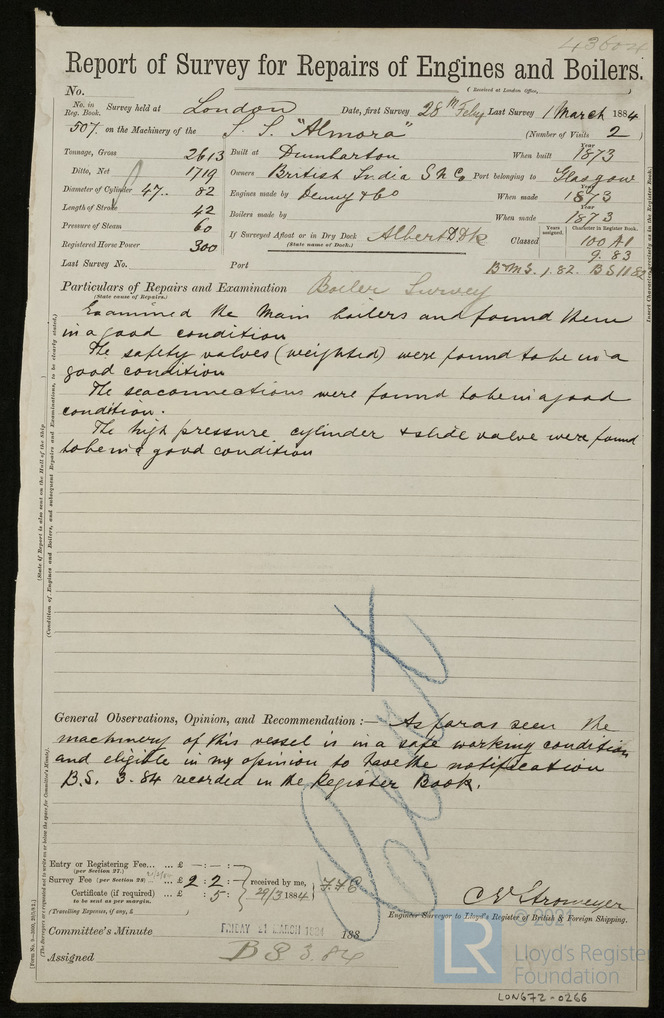 43604
Report of Survey for Repairs of Engines and Boilers.
(Received at London Office,
No.
No. in Reg. Book. Survey held at London Date, first Survey 28th Feby Last Survey 1 March 1884
507 on the Machinery of the S. S. "Almora" (Number of Visits 2)
Tonnage, Gross 2613 Built at Dumbarton When built Year 1873
Ditto, Net 1719 Owners British India S N Co Port belonging to Glasgow
Diameter of Cylinder 47.. 82 Engines made by Denny & Co When made Year 1873
Length of Stroke 42 Boilers made by When made Year 1873
Pressure of Steam 60 If Surveyed Afloat or in Dry Dock Albert D Dk Classed Years assigned. Character in Register Book. 100 A1
Registered Horse Power 300 (State name of Dock.) 9. 83
Last Survey No. Port B&MS. 1.82. BS 11 82
Particulars of Repairs and Examination Boiler Survey
(State cause of Repairs.)
Examined the Main boilers and found them
in a good condition
The safety valves (weighted) were found to be in a
good condition
The seaconnections were found to be in a good
condition.
The high pressure cylinder & slide valve were found
to be in a good condition
(State if Report is also sent on the Hull of the Ship.
(Condition of Engines and Boilers, and subsequent Repairs and Examinations, to be clearly stated.)
Insert Character precisely as in the Register Book.)
General Observations, Opinion, and Recommendation :— As far as seen the
machinery of this vessel is in a safe working condition
and eligible in my opinion to have the notification
B.S. 3.84 recorded in the Register Book.
Cert
Entry or Registering Fee... ... £ — : — : —
(per Section 27.)
Survey Fee (per Section 28) ... £ 2 : 2 : — received by me,
Certificate (if required) ... £ : 5 : 29/3 1884
to be sent as per margin.
(Travelling Expenses, if any, £ )
C E Stromeyer
Engineer Surveyor to Lloyd's Register of British & Foreign Shipping.
Committee's Minute FRIDAY 21 MARCH 1884 188
Assigned BS 3.84
© 2021
LR
Lloyd's Register
Foundation
LON672-0266